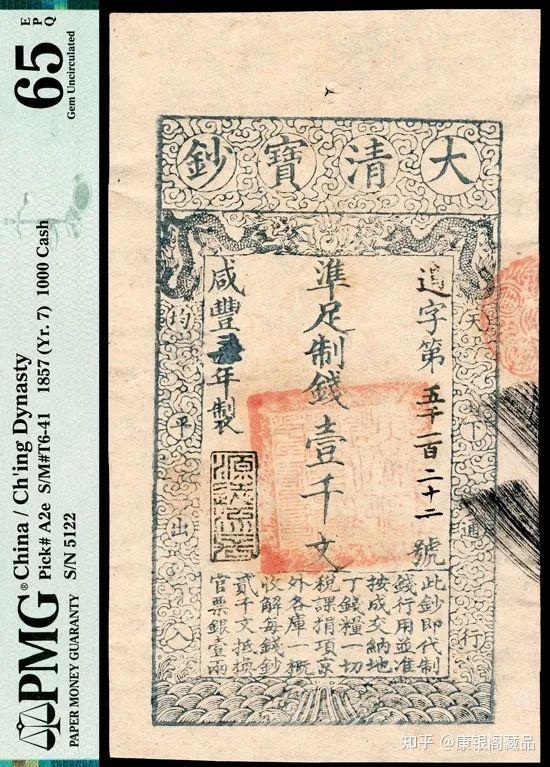 PMG®
PAPER MONEY GUARANTY
China / Ch'ing Dynasty
Pick# A2e S/M#T6-41 1857 (Yr. 7) 1000 Cash
S/N 5122
65
EPQ
Gem Uncirculated
大清寶鈔
天下通行
字第五千一百二十二號
準足制錢壹千文
咸豐年製
均平出入
此鈔即代制
錢行用並准
按成交納地
丁錢糧一切
税課捐項京
外各庫一概
收解每錢鈔
貳千文抵換
官票銀壹兩
知乎 @康银阁藏品